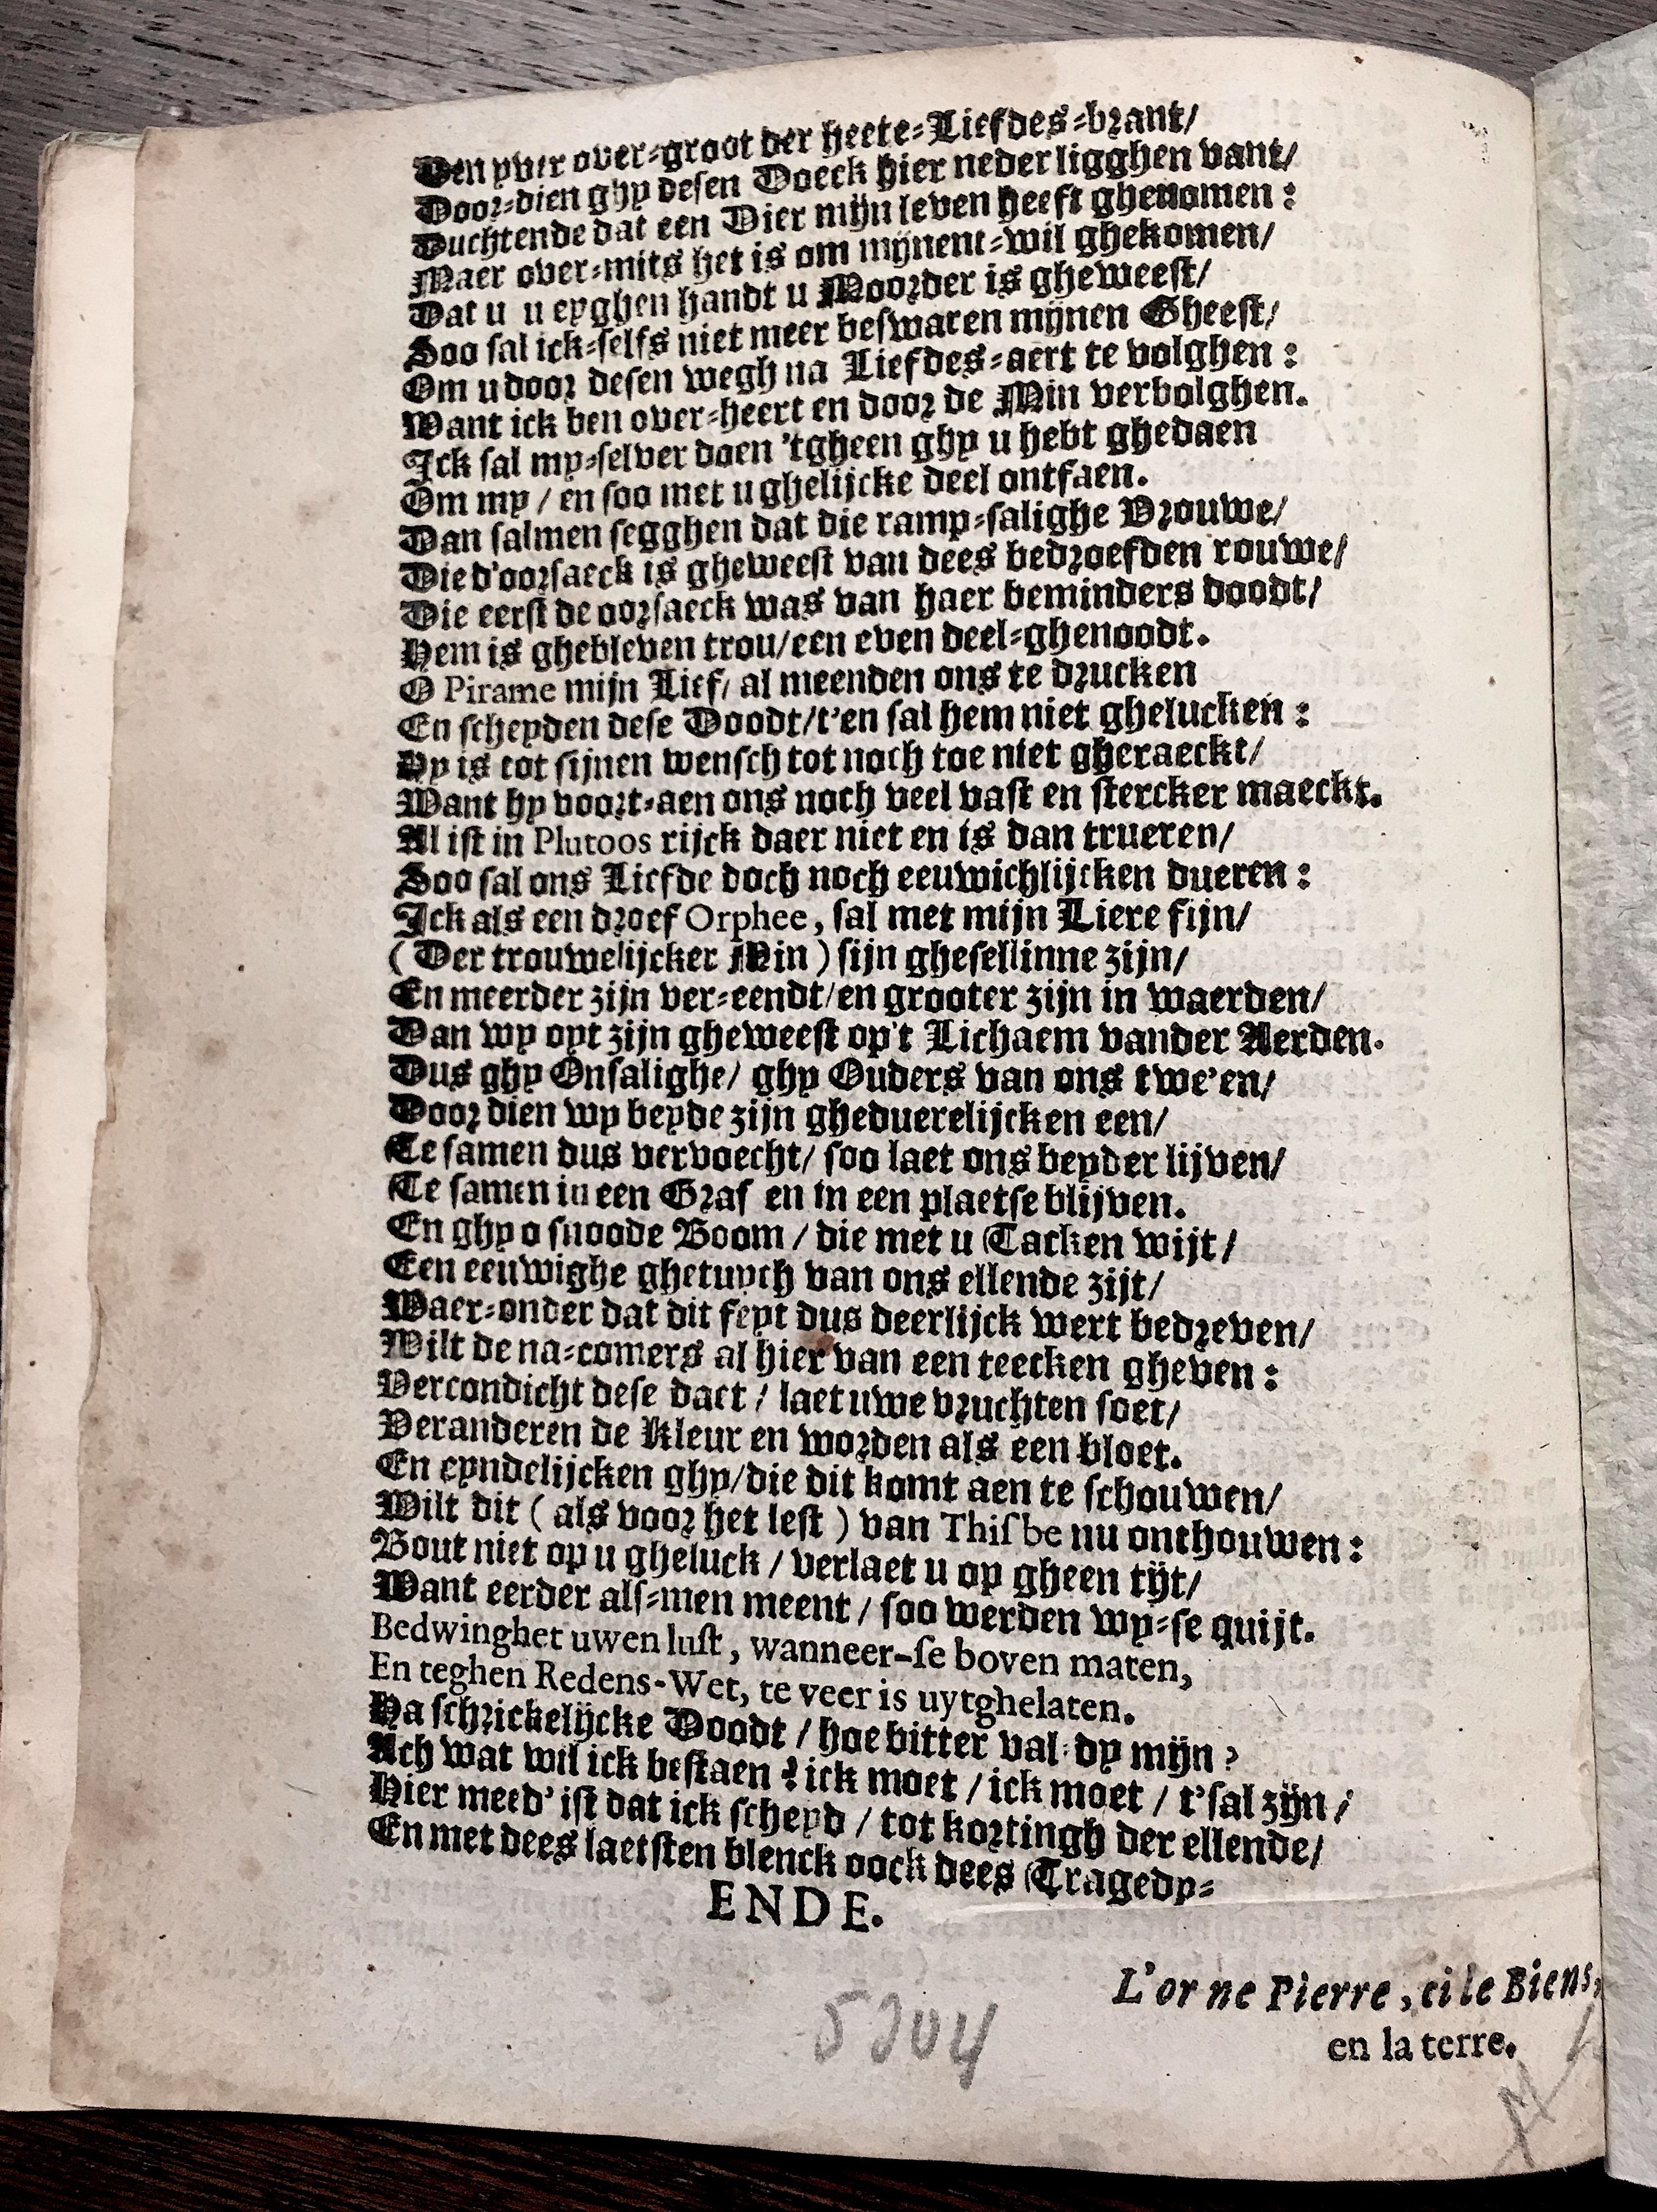 Den yver over-groot der heete-Liefdes-brant/
Door-dien ghy desen Doeck hier neder ligghen vant/
Duchtende dat een Dier mijn leven heeft ghenomen:
Maer over-mits het is om mijnent-wil ghekomen/
Dat u u eyghen handt u Moorder is gheweest/
Soo sal ick-selfs niet meer beswaren mijnen Gheest/
Om u door desen wegh na Liefdes-aert te volghen:
Want ick ben over-heert en door de Min verbolghen.
Ick sal my-selver doen 'tgheen ghy u hebt ghedaen
Om my / en soo met u ghelijcke deel ontfaen.
Dan salmen segghen dat die ramp-salighe Vrouwe/
Die d'oorsaeck is gheweest van dees bedroefden rouwe/
Die eerst de oorsaeck was van haer beminders doodt/
Hem is ghebleven trou/een even deel-ghenoodt.
O Pirame mijn Lief/ al meenden ons te drucken
En scheyden dese Doodt/t'en sal hem niet ghelucken:
Hy is tot sijnen wensch tot noch toe niet gheraeckt/
Want hy voort-aen ons noch veel vast en stercker maeckt.
Al ist in Plutoos rijck daer niet en is dan trueren/
Soo sal ons Liefde doch noch eeuwichlijcken dueren:
Ick als een droef Orphee, sal met mijn Liere fijn/
(Der trouwelijcker Min) sijn ghesellinne zijn/
En meerder zijn ver-eendt/en grooter zijn in waerden/
Dan wy oyt zijn gheweest op't Lichaem vander Aerden.
Dus ghy Onsalighe/ ghy Ouders van ons twe'en/
Door dien wy beyde zijn gheduerelijcken een/
Te samen dus vervoecht/ soo laet ons beyder lijven/
Te samen in een Graf en in een plaetse blijven.
En ghy o snoode Boom / die met u Tacken wijt/
Een eeuwighe ghetuych van ons ellende zijt/
Waer-onder dat dit feyt dus deerlijck wert bedreven/
Wilt de na-comers al hier van een teecken gheven:
Vercondicht dese daet / laet uwe vruchten soet/
Veranderen de Kleur en worden als een bloet.
En eyndelijcken ghy/die dit komt aen te schouwen/
Wilt dit (als voor het lest) van Thisbe nu onthouwen:
Bout niet op u gheluck / verlaet u op gheen tijt/
Want eerder als-men meent / soo werden wy-se quijt.
Bedwinghet uwen lust, wanneer-se boven maten,
En teghen Redens-Wet, te veer is uytghelaten.
Ha schrickelijcke Doodt / hoe bitter val-dy mijn?
Ach wat wil ick bestaen? ick moet / ick moet / t'sal zijn/
Hier meed' ist dat ick scheyd / tot kortingh der ellende/
En met dees laetsten blenck oock dees Tragedy-
ENDE.
L'or ne Pierre, ci le Biens,
en la terre.
5204